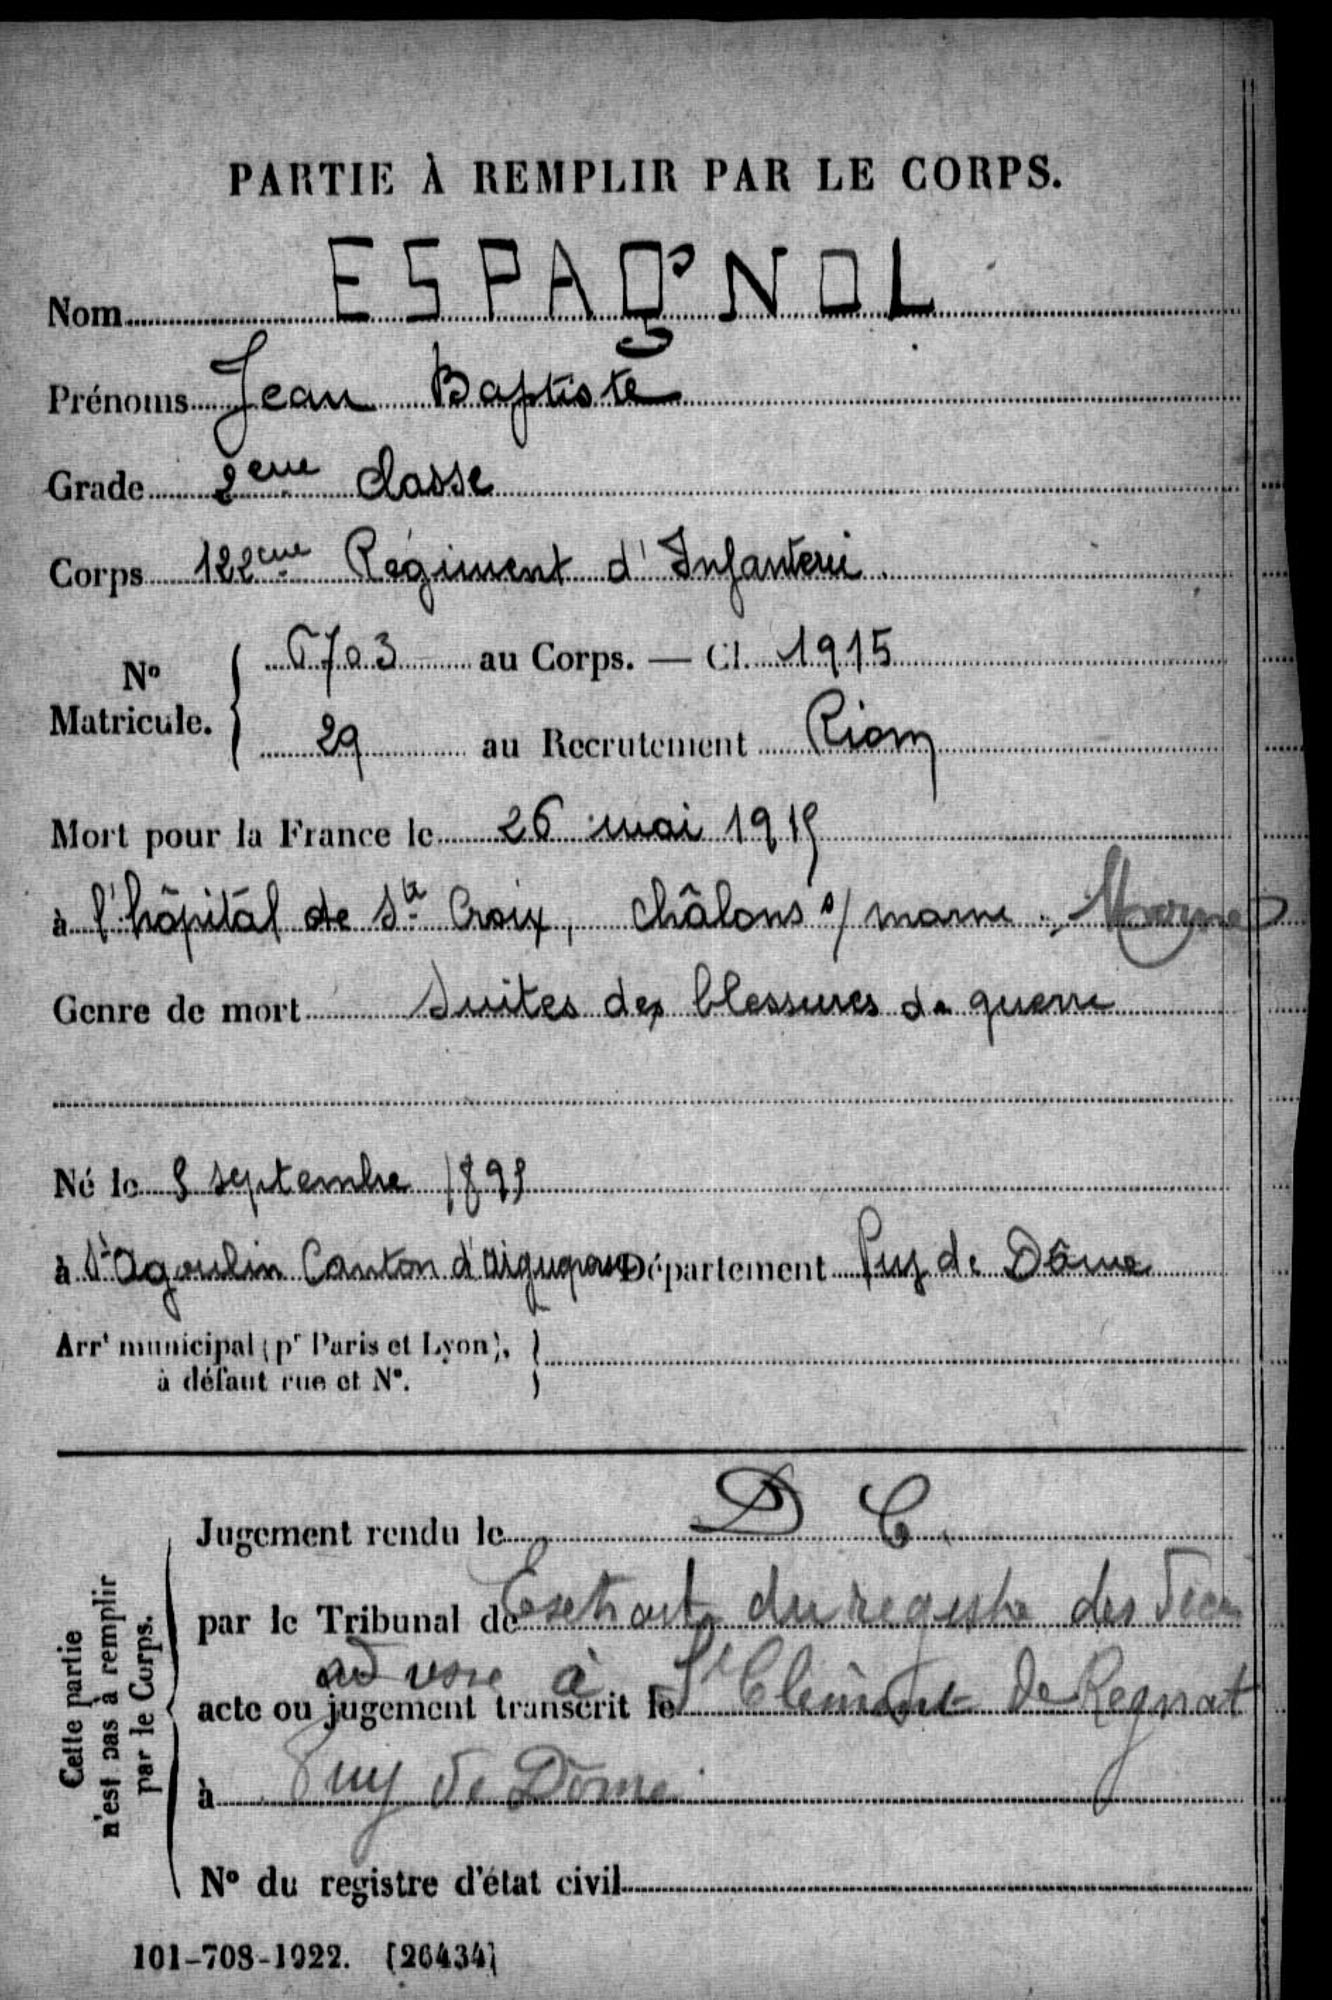 PARTIE À REMPLIR PAR LE CORPS.
Nom ESPAGNOL
Prénoms Jean Baptiste
Grade 2eme classe
Corps 122eme Régiment d'Infanterie.
No Matricule. { 6703 au Corps. — Cl. 1915
29 au Recrutement Riom
Mort pour la France le 26 mai 1915
à l'hôpital de Ste Croix, châlons s/ marne. Marne
Genre de mort Suites des blessures de guerre
Né le septembre 1895
à St Agoulin Canton d'Aigueperse Département Puy de Dôme
Arrt municipal (pr Paris et Lyon), à défaut rue et No. }
Cette partie n'est pas à remplir par le Corps.
Jugement rendu le D C
par le Tribunal de Extrait du registre des
acte ou jugement transcrit le à St Clément de Regnat
à Puy de Dôme
No du registre d'état civil
101-708-1922. [26434]